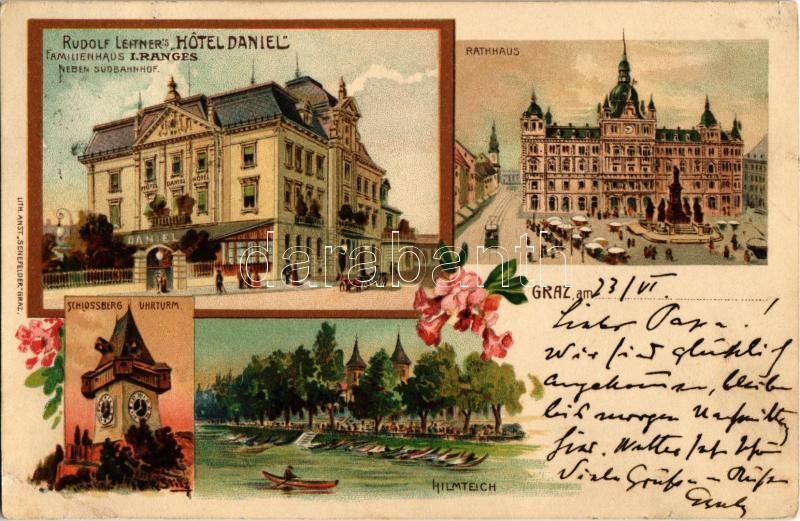 RUDOLF LEITNER'S „HÔTEL DANIEL“
FAMILIENHAUS I.RANGES
NEBEN SÜDBAHNHOF.
HÔTEL DANIEL HÔTEL
DANIEL
LITH. ANST. „SENEFELDER“ GRAZ.
RATHHAUS
SCHLOSSBERG UHRTURM.
HILMTEICH
GRAZ, am 23/VI.
Lieber Papa!
Wir sind glücklich
angekommen, bleiben
bis morgen Nachmittag
hier. Wetter sehr schön
Viele Grüße u Küsse
darabanth.com